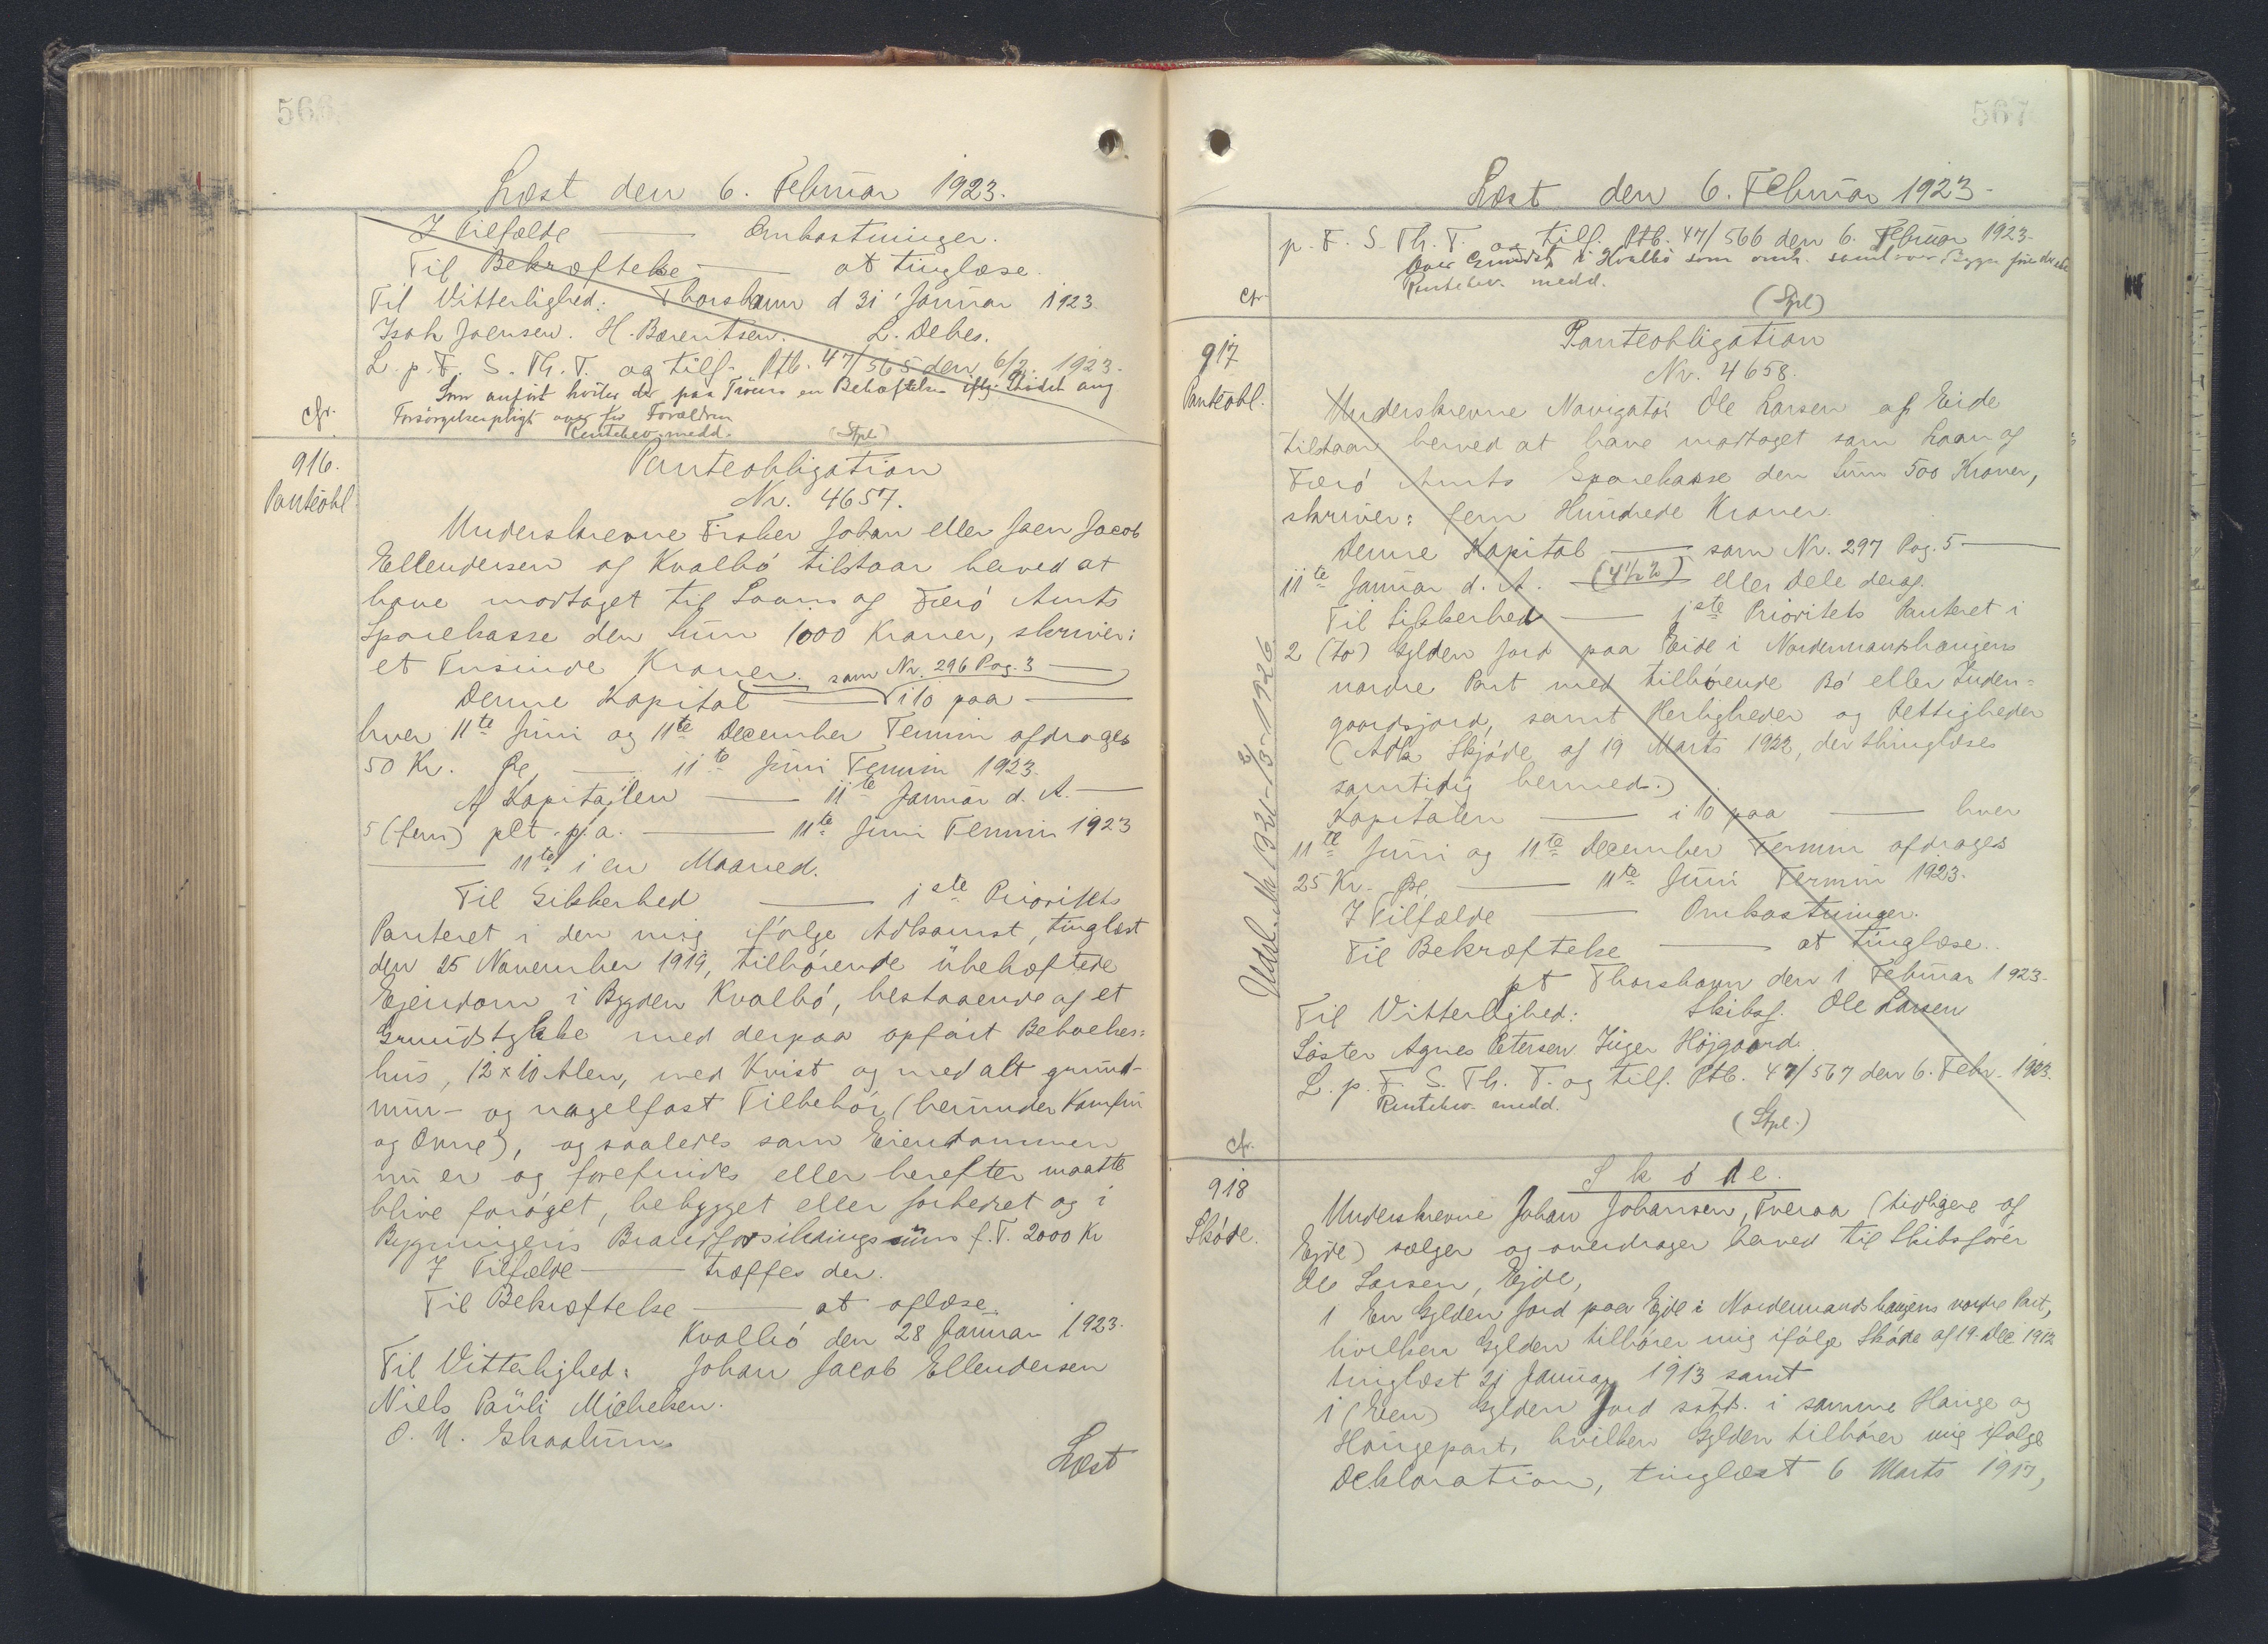 566
Læst den 6. Februar 1923.
I Tilfælde — Omkostninger.
Til Bekræftelse — at tinglæse.
Til Vitterlighed. Thorshavn d 31' Januar 1923
Isak Joensen. H. Barentsen. L. Debes.
L. p. F. S. Th. T. og tilf. Ptb. 47/565 den 6/2 1923.
Som anført hviler der paa Tröen en Behæftelse iflg. Skøde ang
Forsörgelsespligt over for Forældren
cfr. Rentebev. medd. (Stpl)
916.
Panteobl.
Panteobligation
Nr. 4657.
Underskrevne Fisker Johan eller Joen Jacob
Ellendersen af Kvalbö tilstaar herved at
have modtaget til Laans af Færö Amts
Sparekasse den Sum 1000 Kroner, skriver:
et Tusinde Kroner. som Nr. 296 Pag. 3 —
Denne Kapital — i 10 paa —
hver 11te Juni og 11te December Termin afdrages
50 Kr. Pe, — 11te Juni Termin 1923.
Af Kapitalen — 11te Januar d. A. —
5 (fem) pct. p. a. — 11te Juni Termin 1923
— 11te i en Maaned.
Til Sikkerhed — 1ste Prioritets
Panteret i den mig ifölge Adkomst, tinglæst
den 25 November 1919, tilhörende übehæftede
Ejendom i Bygden Kvalbö, bestaaende af et
Grundstykke med derpaa opfört Beboelses=
hus, 12 x 10 Alen, med Kvist og med alt grund-
mur- og nagelfast Tilbehör, (herunder Komfur
og Ovne), og saaledes som Eiendommen
nu er og forefindes eller herefter maatte
blive foröget, bebygget eller forbedret og i
Bygningens Brandforsikringssum f. T. 2000 Kr
I Tilfælde — træffes der.
Til Bekræftelse — at aflæse.
Kvalbö den 28 Januar 1923.
Til Vitterlighed: Johan Jacob Ellendersen
Niels Pauli Michelsen.
O. N. Skaalum
Læst
567
Læst den 6. Februar 1923-
p. F. S. Th. T. og tilf. Ptb. 47/566 den 6. Februar 1923-
over Grundst. i Hvalbö som omh. samt over Bygn.
Rentebev. medd.
cfr. (Stpl)
917
Panteobl.
Panteobligation
Nr. 4658.
Underskrevne Navigatör Ole Larsen af Eide
tilstaar herved at have modtaget som Laan af
Færö Amts Sparekasse den Sum 500 Kroner,
skriver: fem Hundrede Kroner.
Denne Kapital — som Nr. 297 Pag. 5 —
11te Januar d. A. (4½ %) eller Dele deraf.
Til Sikkerhed — 1ste Prioritets Panteret i
2 (to) Gylden Jord paa Eide i Nordermandshaugens
nordre Part med tilhörende Bö eller Inden=
gaardsjord, samt Herligheder og Rettigheder
(Adk. Skjöde af 19 Marts 1922, der thinglæses
samtidig hermed.)
Kapitalen — i 10 paa — hver
11te Juni og 11te December Termin afdrages
25 Kr. Pe, — 11te Juni Termin 1923.
I Tilfælde — Omkostninger.
Til Bekræftelse — at tinglæse.
pt Thorshavn den 1 Februar 1923-
Til Vitterlighed: Skibsf. Ole Larsen
Söster Agnes Petersen Inger Höjgaard.
L. p. F. S. Th. T. og tilf. Ptb. 47/567 den 6. Febr. 1923.
Rentebev. medd.
(Stpl.)
cfr.
918
Sköde.
Sköde.
Underskrevne Johan Johansen, Tveraa (tidligere af
Ejde) sælger og overdrager herved til Skibsförer
Ole Larsen, Ejde,
1 En Gylden Jord paa Ejde i Nordermandshaugens nordre Part,
hvilken Gylden tilhörer mig ifölge Sköde af 19. Dec 1912
tinglæst 21 Januar 1913 samt
1 (Een) Gylden Jord sstds. i samme Hauge og
Haugepart, hvilken Gylden tilhörer mig ifölge
Deklaration, tinglæst 6 Marts 1917,